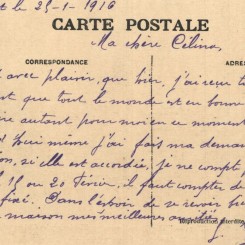 le 25-1-1916
CARTE POSTALE
Ma chère Célina,
CORRESPONDANCE
ADRES
avec plaisir, que hier, j'ai reçu t
est que tout le monde est en bonne
autant pour moi en ce moment
moi même j'ai fait ma deman
on, si elle est accordée, je ne compte p
18 ou 20 Février, il faut compter de
fixé. Dans l'espoir de te revoir bien
maison mes meilleures amitiés
Reproduction interdite
J.